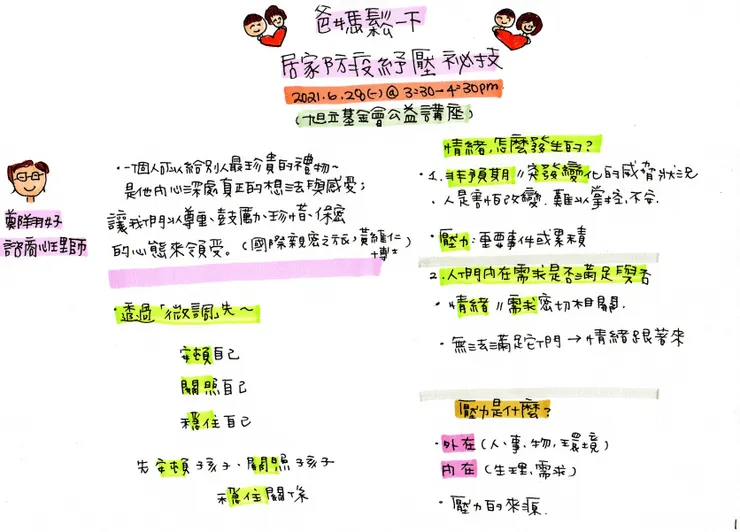 爸媽鬆一下
居家防疫紓壓祕技
2021.6.28(一)@ 3:30-4:30pm
(旭立基金會公益講座)
鄭翔好
諮商心理師
·一個人可以給別人最珍貴的禮物~
是他內心深處真正的想法與感受;
讓我們以尊重、鼓勵、珍惜、保密
的心態來領受。(國際親密之旅,黃維仁
博士)
·透過「微調」先~
安頓自己
關照自己
穩住自己
先安頓孩子、關照孩子
穩住關係
情緒,怎麼發生的?
1.非預期//突發變化的威脅狀況
·人是害怕改變、難以掌控、不安
·壓力:重要事件或累積
2.人們內在需求是否滿足與否
·情緒//需求密切相關.
·無法滿足它們→情緒跟著來
壓力是什麼?
·外在(人、事、物、環境)
內在(生理、需求)
·壓力的來源.
1